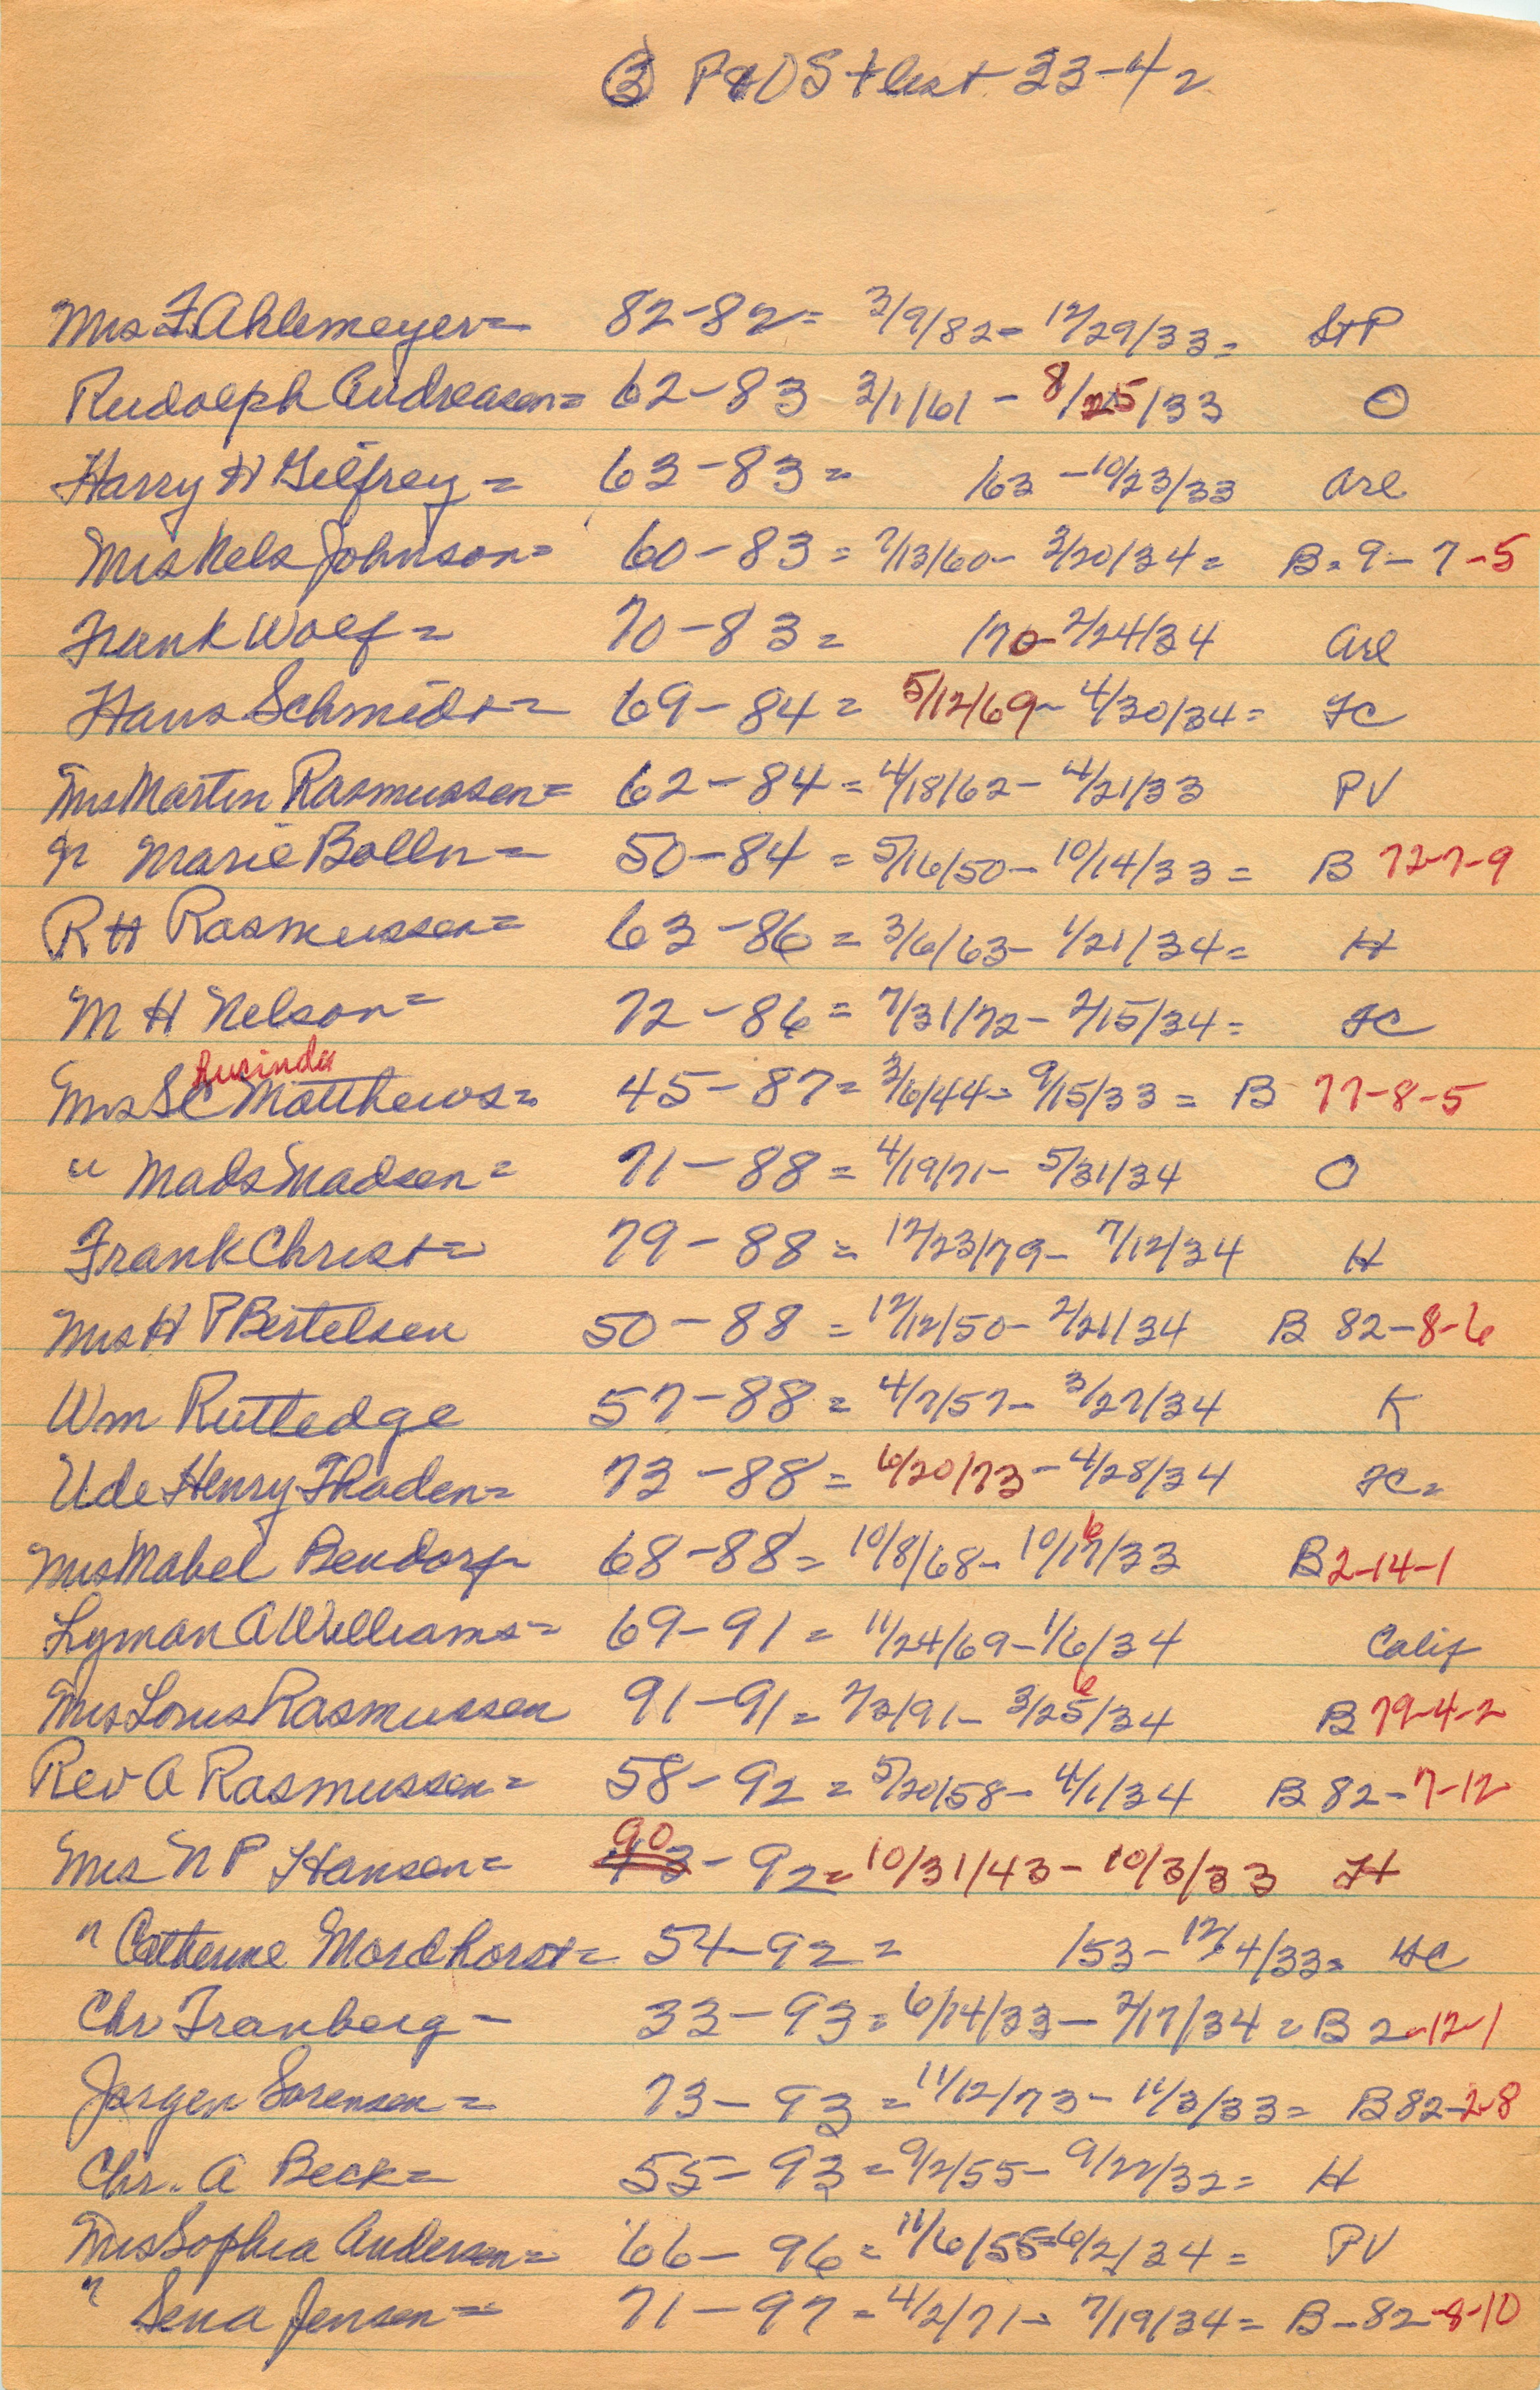 ③ P&OS + list 33-42
Mrs F. Ahlemeyer= 82-82= 3/9/82- 12/29/33= StP
Rudolph Andreasen= 62-83 3/1/61 - 8/25/33 O
Harry H Gilfrey= 63-83= /63 -10/23/33 Arl
Mrs Nels Johnson= 60-83= 7/13/60- 3/20/34= B.9-7-5
Frank Wolf= 70-83= /70- 2/24/34 Arl
Hans Schmidt= 69-84= 5/12/69- 4/30/34= FC
Mrs Martin Rasmussen= 62-84= 4/18/62- 4/21/33 PV
" Marie Bolln= 50-84= 5/16/50- 10/14/33= B 72-7-9
R H Rasmussen= 63-86= 3/6/63- 1/21/34= H
M H Nelson= 72-86= 7/31/72- 2/15/34= FC
Lucinda
Mrs SC Matthews= 45-87= 3/6/44- 9/15/33= B 77-8-5
" Mads Madsen= 71-88= 4/19/71- 5/31/34 O
Frank Christ= 79-88= 12/23/79- 7/12/34 H
Mrs H P Bertelsen 50-88 = 12/12/50- 2/21/34 B 82-8-6
Wm Rutledge 57-88= 4/7/57- 3/27/34 K
Ude Henry Thaden= 73-88= 6/20/73-4/28/34 FC=
Mrs Mabel Bendorf 68-88= 10/8/68- 10/16/33 B2-14-1
Lyman A Williams= 69-91= 11/24/69-1/6/34 Calif
Mrs Louis Rasmussen 91-91= 7/3/91- 3/26/34 B 79-4-2
Rev A Rasmussen= 58-92= 5/20/58- 4/1/34 B 82-7-12
Mrs N P Hansen= 90-92= 10/31/43- 10/3/33 H
" Catherine Mordhorst= 54-92= /53- 12/4/33= FC
Chr Tranberg- 33-93= 6/14/33- 2/17/34= B 2-12-1
Jorgen Sorensen= 73-93= 11/12/73- 11/3/33= B82-2-8
Chr. A Beck= 55-93= 9/2/55- 9/22/32= H
Mrs Sophia Andersen= 66-96= 11/6/55-6/2/34= PV
" Sena Jensen= 71-97= 4/2/71- 7/19/34= B-82-8-10